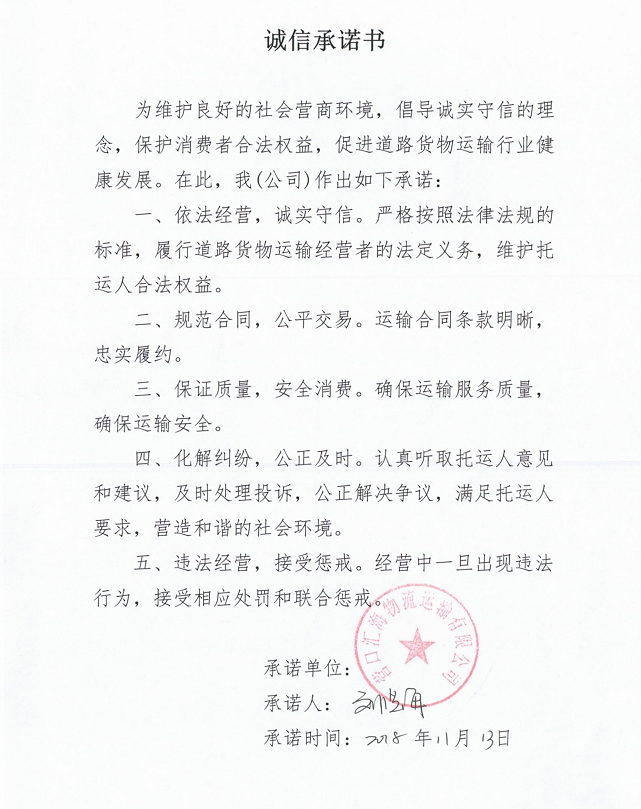 诚信承诺书
为维护良好的社会营商环境，倡导诚实守信的理
念，保护消费者合法权益，促进道路货物运输行业健
康发展。在此，我(公司)作出如下承诺：
一、依法经营，诚实守信。严格按照法律法规的
标准，履行道路货物运输经营者的法定义务，维护托
运人合法权益。
二、规范合同，公平交易。运输合同条款明晰，
忠实履约。
三、保证质量，安全消费。确保运输服务质量，
确保运输安全。
四、化解纠纷，公正及时。认真听取托运人意见
和建议，及时处理投诉，公正解决争议，满足托运人
要求，营造和谐的社会环境。
五、违法经营，接受惩戒。经营中一旦出现违法
行为，接受相应处罚和联合惩戒。
营口汇海物流运输有限公司
承诺单位：
承诺人：
承诺时间：2018年11月13日